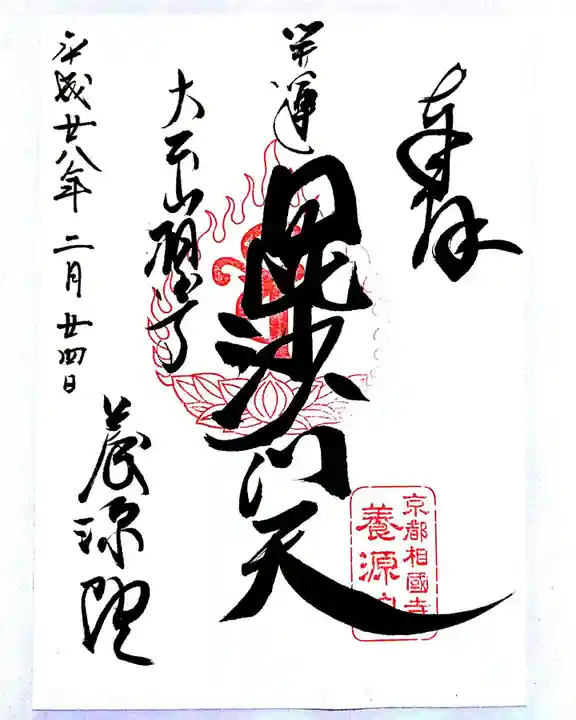 奉拝
開運
毘沙門天
大雲山龍安寺
平成廿八年二月廿四日
養源院
京都相國寺
養源